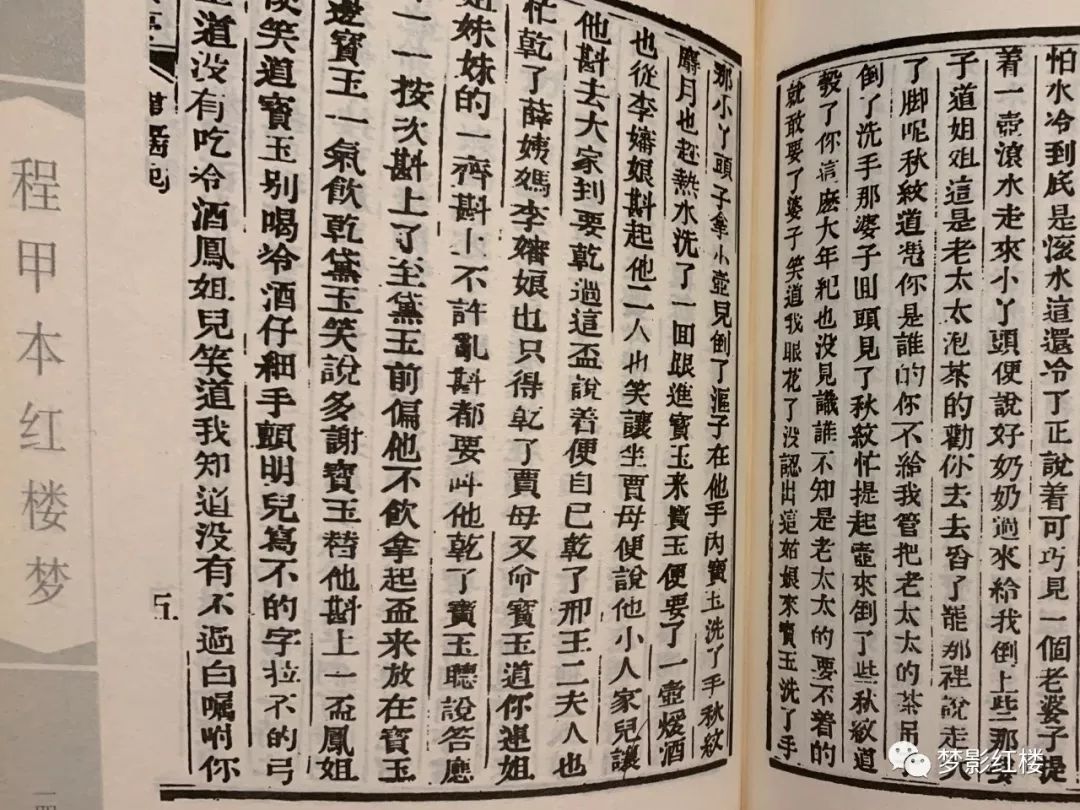 怕水冷到底是滚水這還冷了正說着可巧見一個老婆子提
着一壺滾水走來小丫頭便說好奶奶過來給我倒上些那婆
子道姐姐這是老太太泡茶的勸你去去舀了罷那裡說走大
了脚呢秋紋道憑你是誰的你不給我管把老太太的茶吊
倒了洗手那婆子囬頭見了秋紋忙提起壺來倒了些秋紋道
彀了你這麽大年紀也没見識誰不知是老太太的要不着的
就敢要了婆子笑道我眼花了没認出這姑娘來寶玉洗了手
那小丫頭子拿小壺見倒了漚子在他手内寶玉洗了手秋紋
麝月也赶熱水洗了一囬跟進寶玉来寶玉便要了一壺煖酒
也從李嬸娘斟起他二人也笑讓坐賈母便說他小人家兒讓
他斟去大家到要乾過這盃說着便自己乾了邢王二夫人也
忙乾了薛姨媽李嬸娘也只得乾了賈母又命寶玉道你連姐
姐妹妹的一齊斟上不許亂斟都要呌他乾了寶玉聽說答應
了一一按次斟上了至黛玉前偏他不飲拿起盃来放在寶玉
邊寶玉一氣飲乾黛玉笑說多謝寶玉替他斟上一盃鳳姐
笑道寶玉别喝冷酒仔細手顫明兒寫不的字拉不的弓
道没有吃冷酒鳳姐兒笑道我知道没有不過白囑咐你
五
程甲本红楼梦
梦影红楼